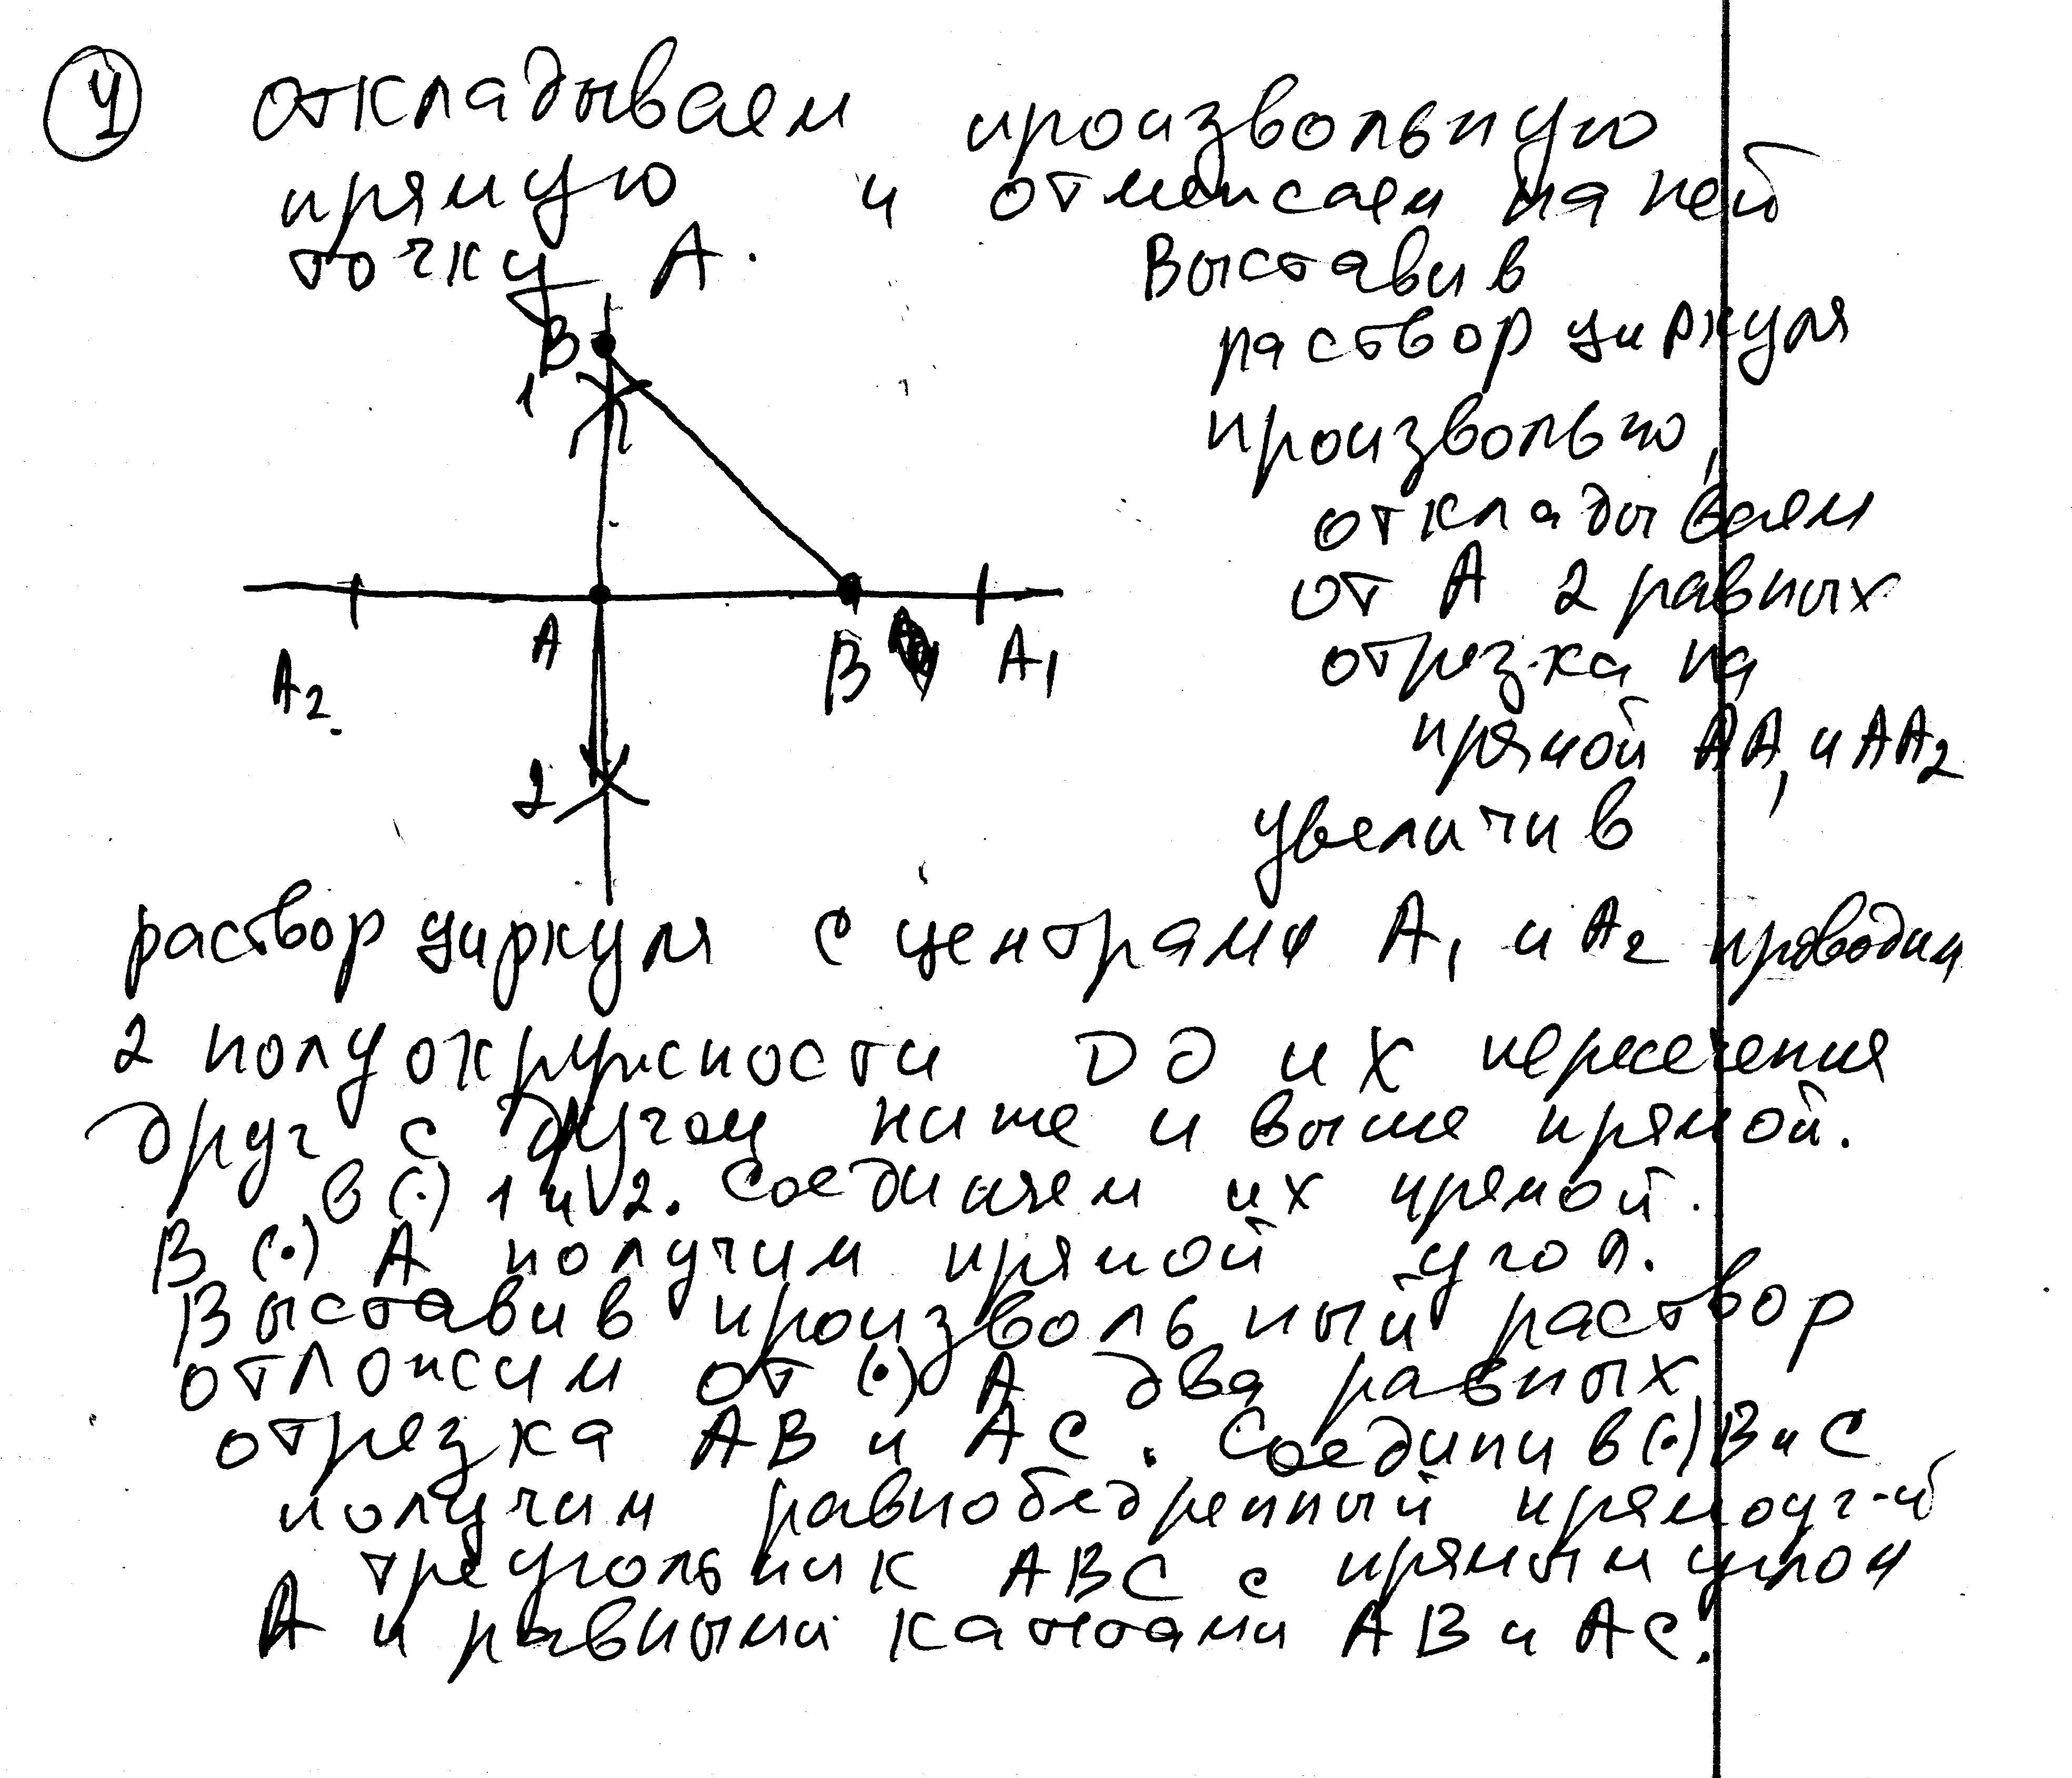 4 откладываем произвольную
прямую и отмечаем на ней
точку А. Выставив
раствор циркуля
произвольно,
откладываем
от А 2 равных
отрезка на
прямой АА1 и АА2
увеличив
В
1
А
В
А1
А2
2
раствор циркуля с центрами А1 и А2 проводим
2 полуокружности до их пересечения
друг с другом ниже и выше прямой.
в (·) 1 и 2. Соединяем их прямой.
В (·) А получим прямой угол.
Выставив произвольный раствор
отложим от (·) А два равных
отрезка АВ и АС. Соединив (·) В и С
получим равнобедренный прямоуг-й
треугольник АВС с прямым углом
А и равными катетами АВ и АС.